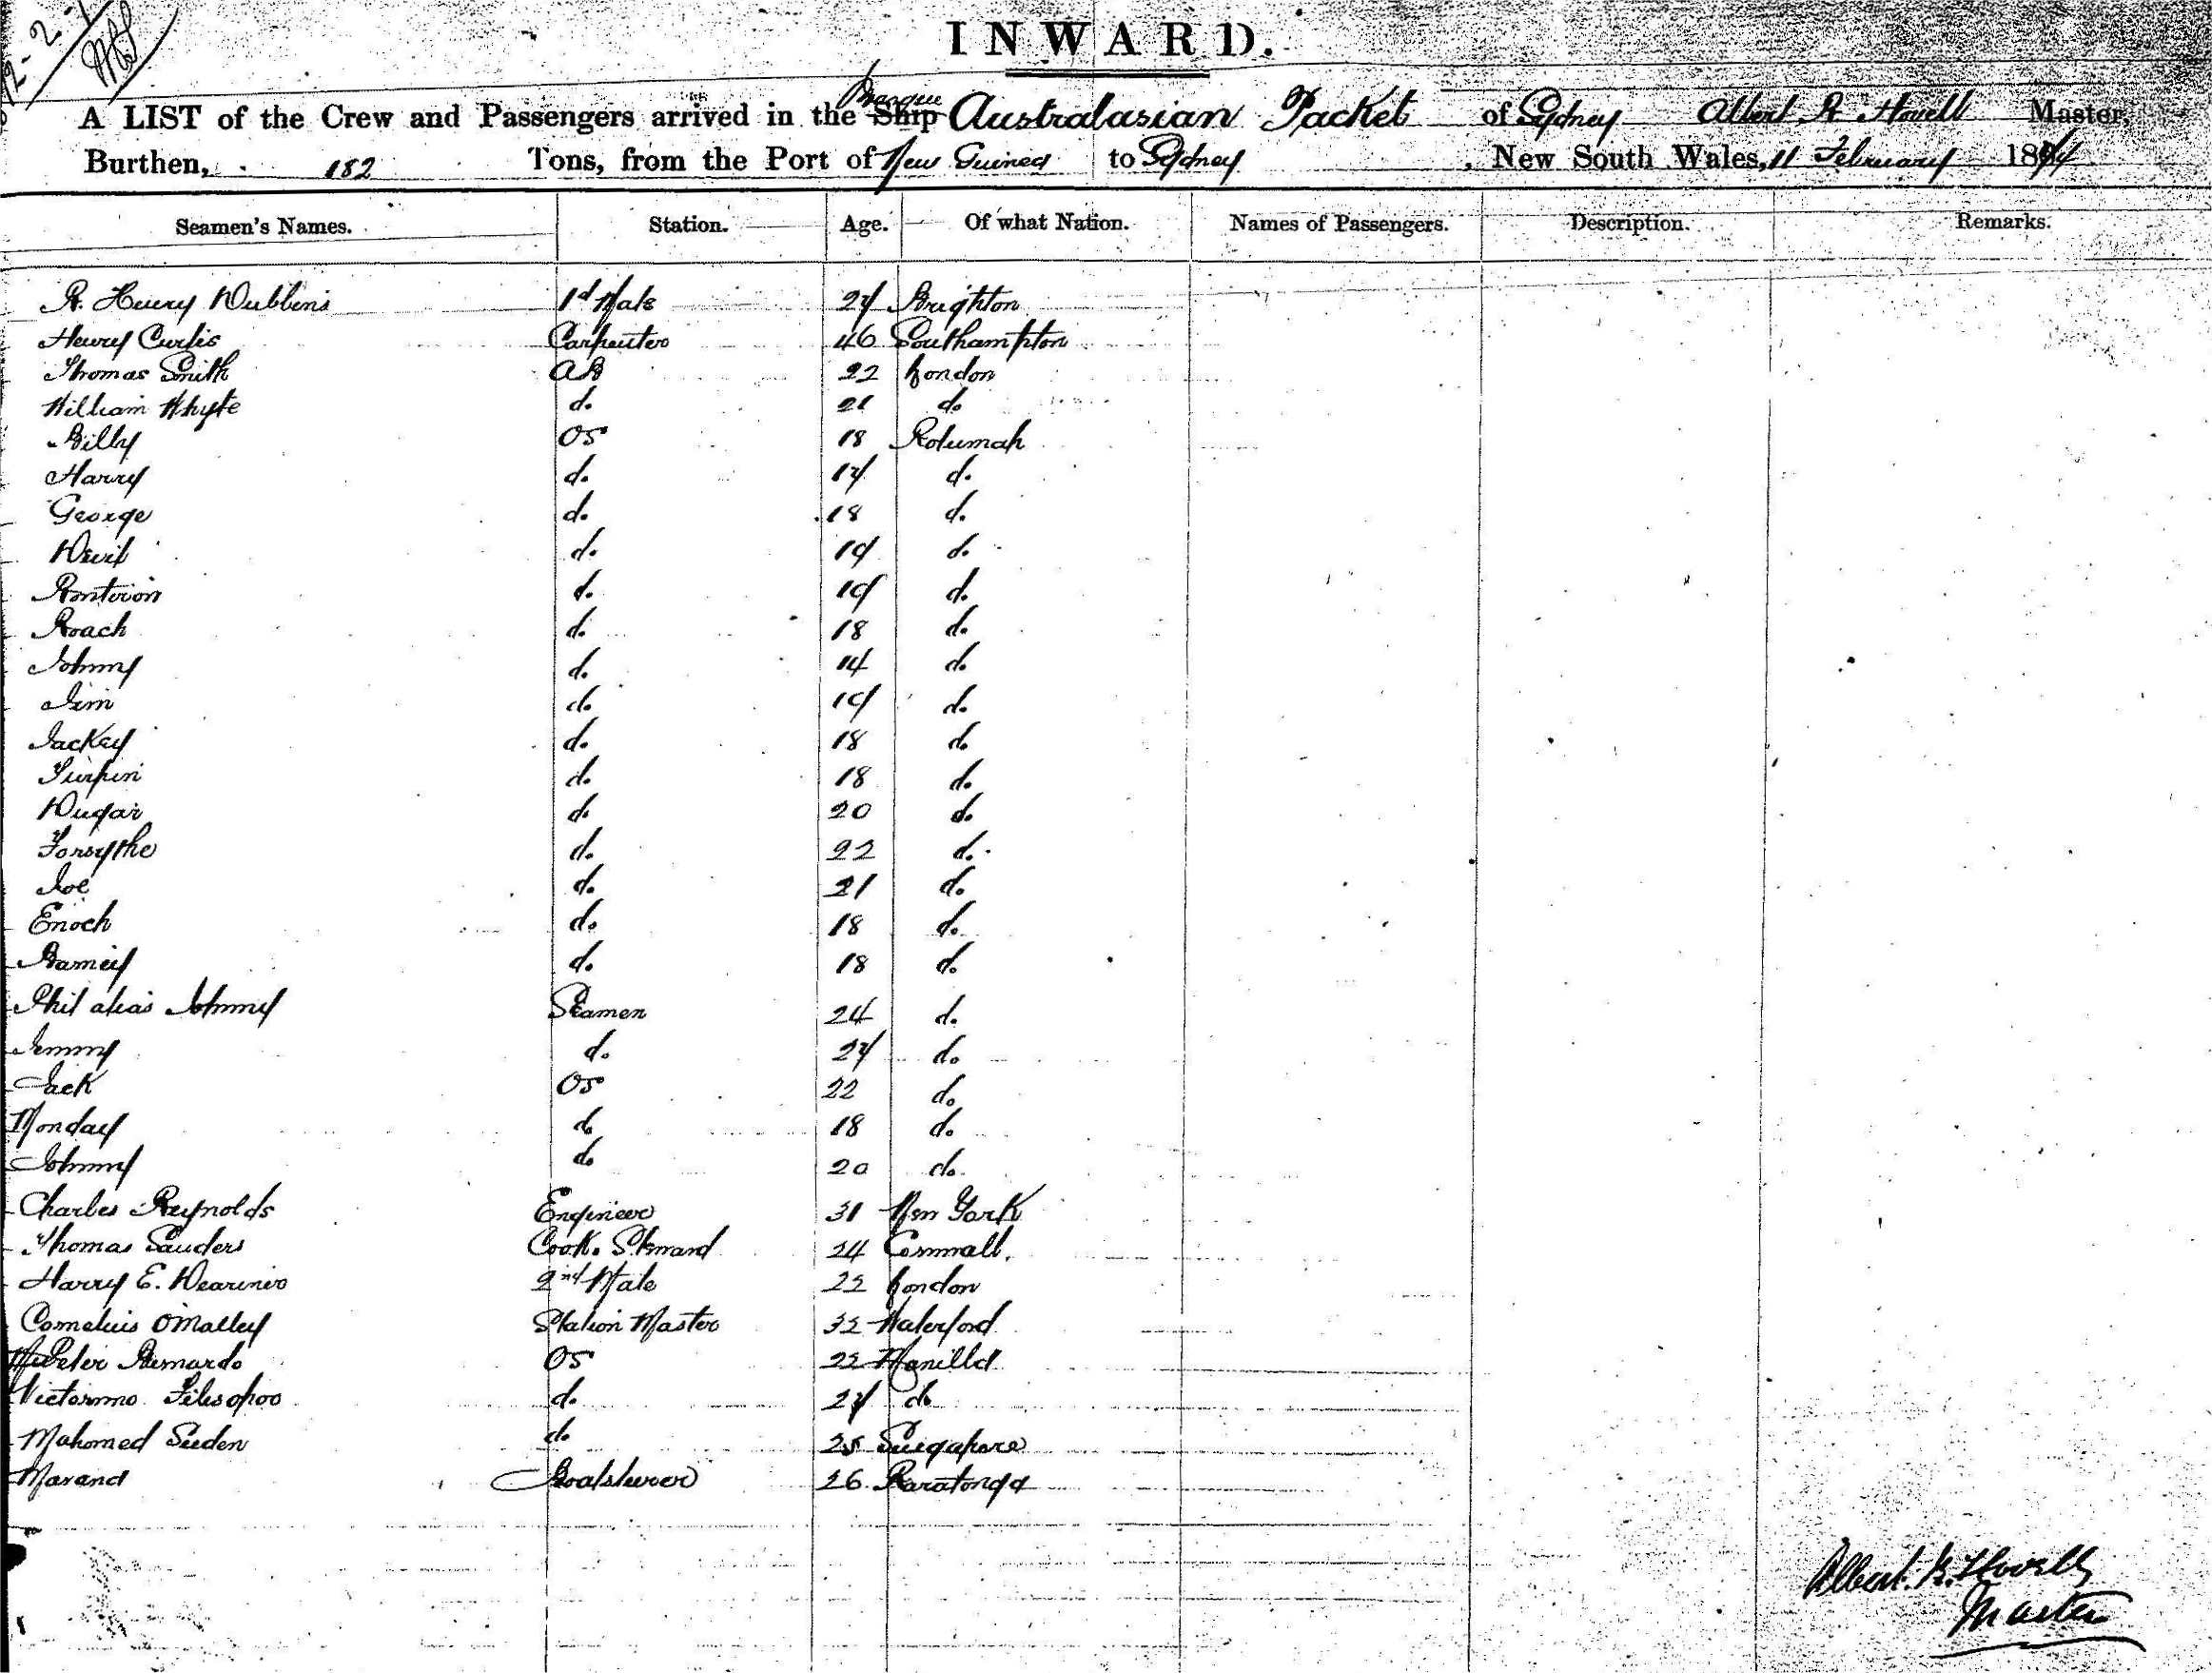 INWARD.
A LIST of the Crew and Passengers arrived in the Barque Ship Australasian Packet of Sydney Albert Hovell Master,
Burthen, 182 Tons, from the Port of New Guinea to Sydney, New South Wales, 11 February 18
Seamen's Names. Station. Age. Of what Nation. Names of Passengers. Description. Remarks.
Henry 1st Mate Brighton
Henry Curtis Carpenter 46 Southampton
Thomas Smith AB 22 London
William Whyte d. 21 do
Billy OS 18 Rotumah
Harry d. d.
George d. 18 d.
Devil d. 19 d.
d. 19 d.
Roach d. 18 d.
Johnny d. 14 d.
Jim do 19 d.
Jackey d. 18 d.
Turpin d. 18 d.
Dugar d. 20 d.
Forsythe d. 22 d.
Joe d. 21 d.
Enoch d. 18 d.
Barney d. 18 d.
Phil alias Johnny Seamen 24 d.
Jemmy d. do
Jack OS 22 do
Monday do 18 do
Johnny do 20 do
Charles Reynolds Engineer 31 New York
Thomas Sauders Cook. Steward 24 Cornwall.
Harry E. 2nd Mate 22 London
Cornelius O'Malley Station Master Waterford
Peter Bernardo OS Manilla
d. do
Mahomed do 25 Singapore
Boatsteerer 26 Raratonga
Albert. Hovell
Master